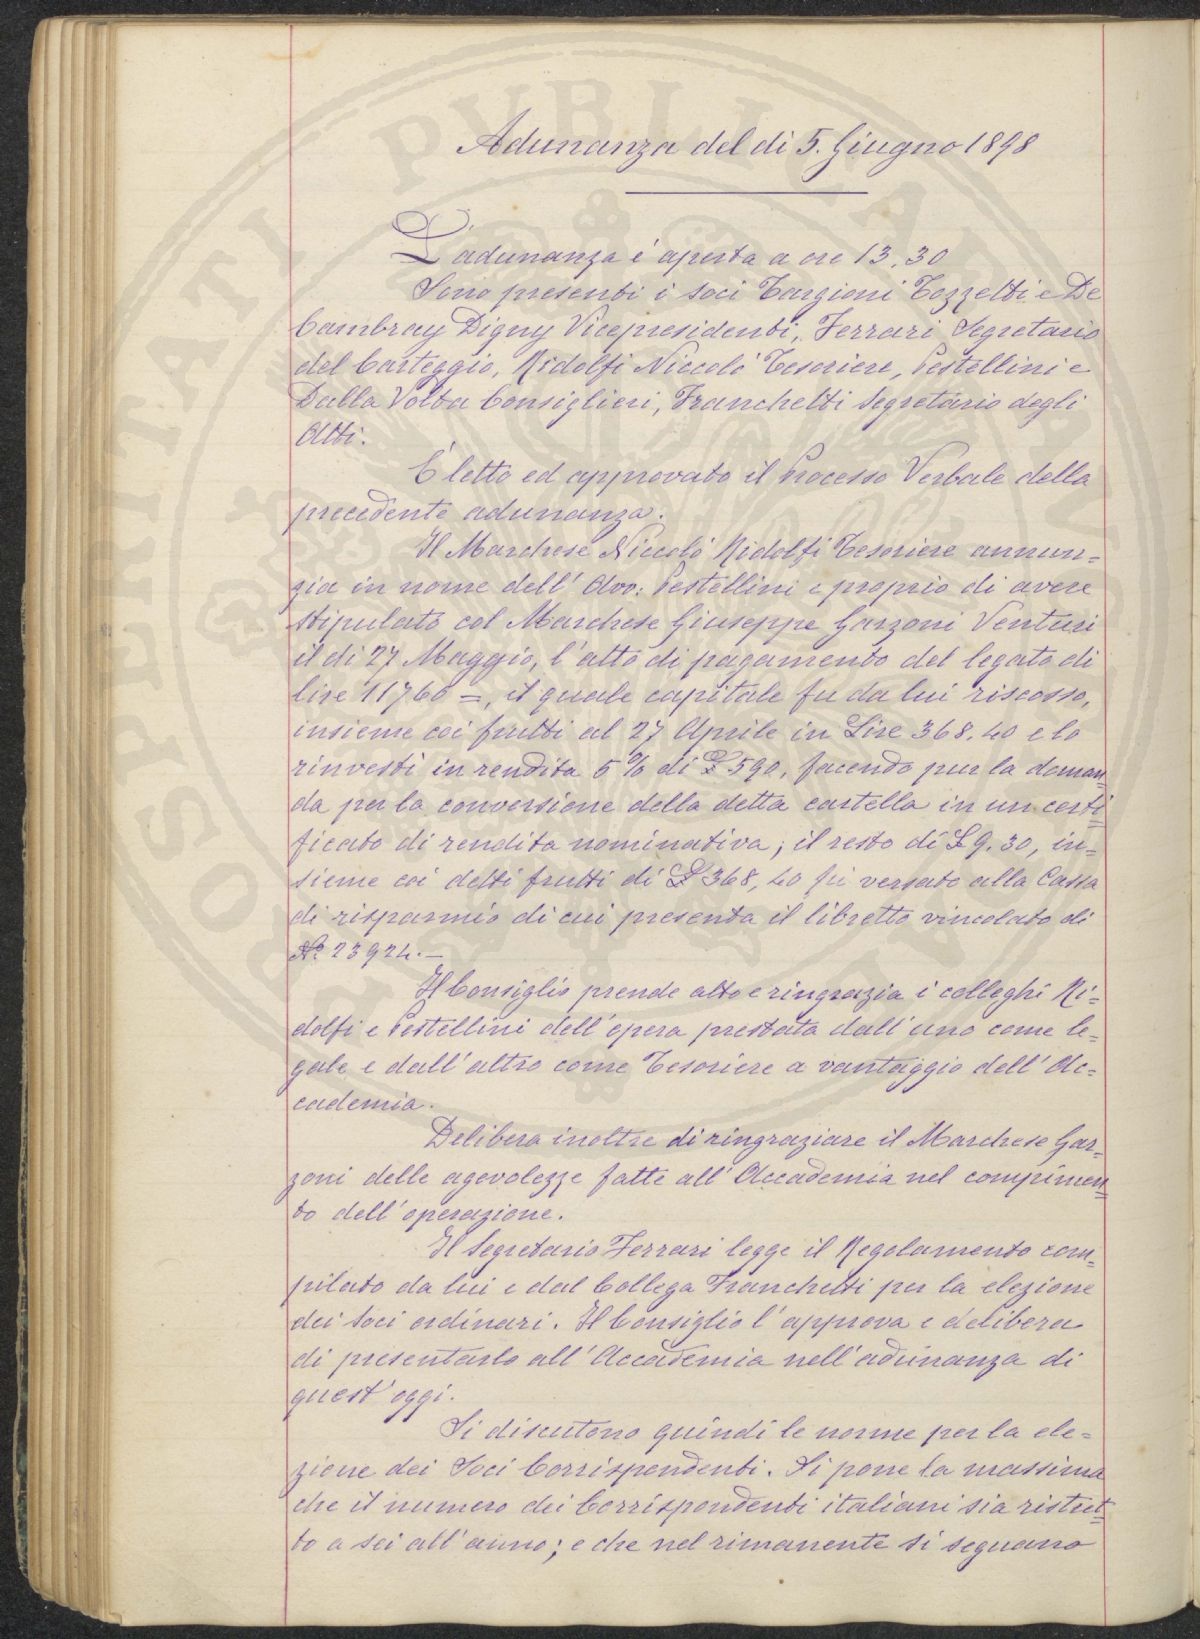 Adunanza del dì 5. Giugno 1898
L'adunanza è aperta a ore 13.30
Sono presenti i soci Targioni Tozzetti e De
Cambray Digny Vicepresidenti, Ferrari Segretario
del Carteggio, Ridolfi Niccolò Tesoriere, Pestellini e
Dalla Volta Consiglieri, Franchetti Segretario degli
Atti.
È letto ed approvato il Processo Verbale della
precedente adunanza.
Il Marchese Niccolò Ridolfi Tesoriere annun=
zia in nome dell'Avv: Pestellini e proprio di avere
stipulato col Marchese Giuseppe Garzoni Venturi
il dì 27 Maggio, l'atto di pagamento del legato di
lire 11760 =, il quale capitale fu da lui riscosso,
insieme coi frutti al 27 Aprile in Lire 368.40 e lo
rinvestì in rendita 5 % di £ 590, facendo pur la doman=
da per la conversione della detta cartella in un certi=
ficato di rendita nominativa; il resto di £ 9.30, in=
sieme coi detti frutti di £ 368,40 fu versato alla Cassa
di risparmio di cui presenta il libretto vincolato di
N.º 23924.—
Il Consiglio prende atto e ringrazia i colleghi Ri=
dolfi e Pestellini dell'opera prestata dall'uno come le=
gale e dall'altro come Tesoriere a vantaggio dell'Ac=
cademia.
Delibera inoltre di ringraziare il Marchese Gar=
zoni delle agevolezze fatte all'Accademia nel compimen=
to dell'operazione.
Il Segretario Ferrari legge il Regolamento com=
pilato da lui e dal Collega Franchetti per la elezione
dei Soci ordinari. Il Consiglio l'approva e delibera
di presentarlo all'Accademia nell'adunanza di
quest'oggi.
Si discutono quindi le norme per la ele=
zione dei Soci Corrispondenti. Si pone la massima
che il numero dei Corrispondenti italiani sia ristret=
to a sei all'anno; e che nel rimanente si seguano